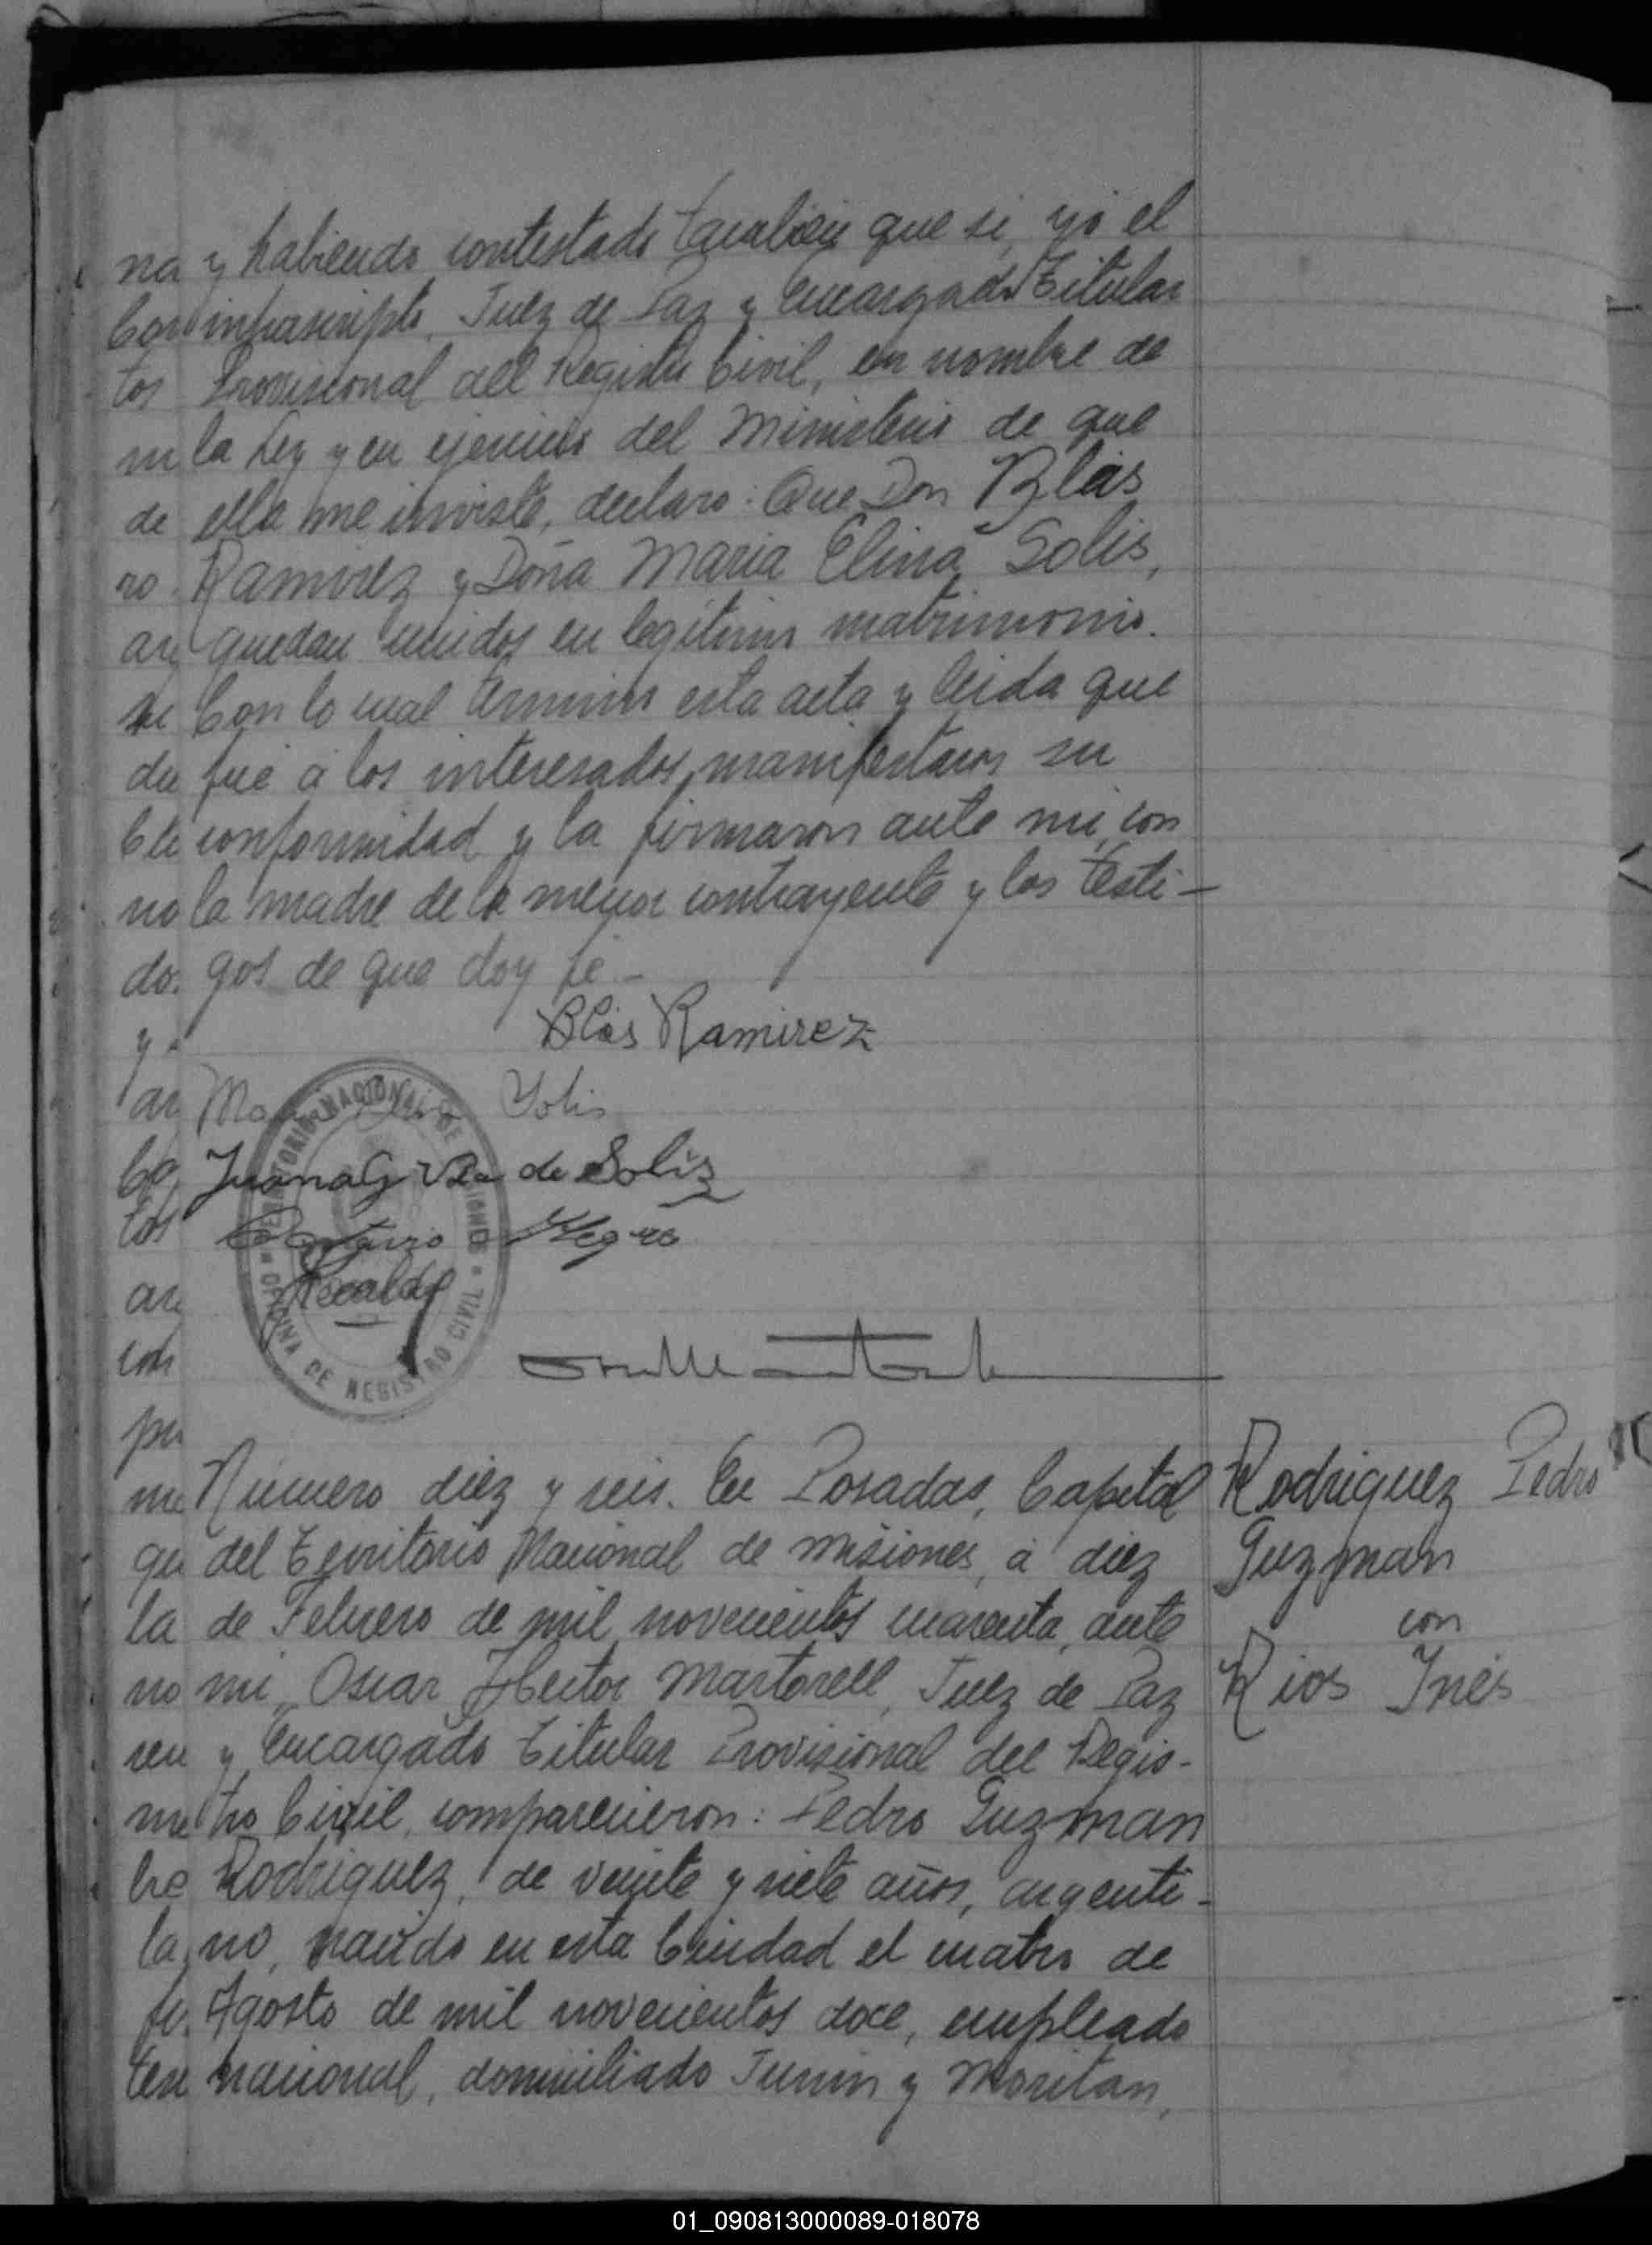 na y habiendo contestado tambien que si, yo el
Con infrascripto, Juez de Paz y Encargado Titular
tos Provisional del Registro Civil, en nombre de
m la Ley y en ejercicio del Ministerio de que
de ella me inviste, declaro: Que Don Blás
ro. Ramirez y Doña Maria Elina Solis,
arg quedan unidos en legitimo matrimonio.
se Con lo cual termino esta acta y leida que
du fué á los interesados, manifestaron su
Cle conformidad y la firmaron ante mi, con
no la madre de la menor contrayente y los testi-
do. gos de que doy fé-
y
Blás Ramirez
ar Solis
Juana G Vda de Solis
tos Negro
Recalde
ar
con
TERRITORIO NACIONAL DE MISIONES
OFICINA DE REGISTRO CIVIL
pu
me Número diez y seis. En Posadas, Capital
qu del Territorio Nacional de Misiones, á diez
la de Febrero de mil novecientos cuarenta, ante
no mi, Oscar Hector Martorell, Juez de Paz
ren y Encargado Titular Provisional del Regis-
me tro Civil, comparecieron: Pedro Guzman
bre Rodriguez, de veinte y siete años, argenti-
la no, nacido en esta Ciudad el cuatro de
fu. Agosto de mil novecientos doce, empleado
ten nacional, domiciliado Junin y Moritan,
Rodriguez Pedro
Guzman
con
Rios Inés
01_090813000089-018078